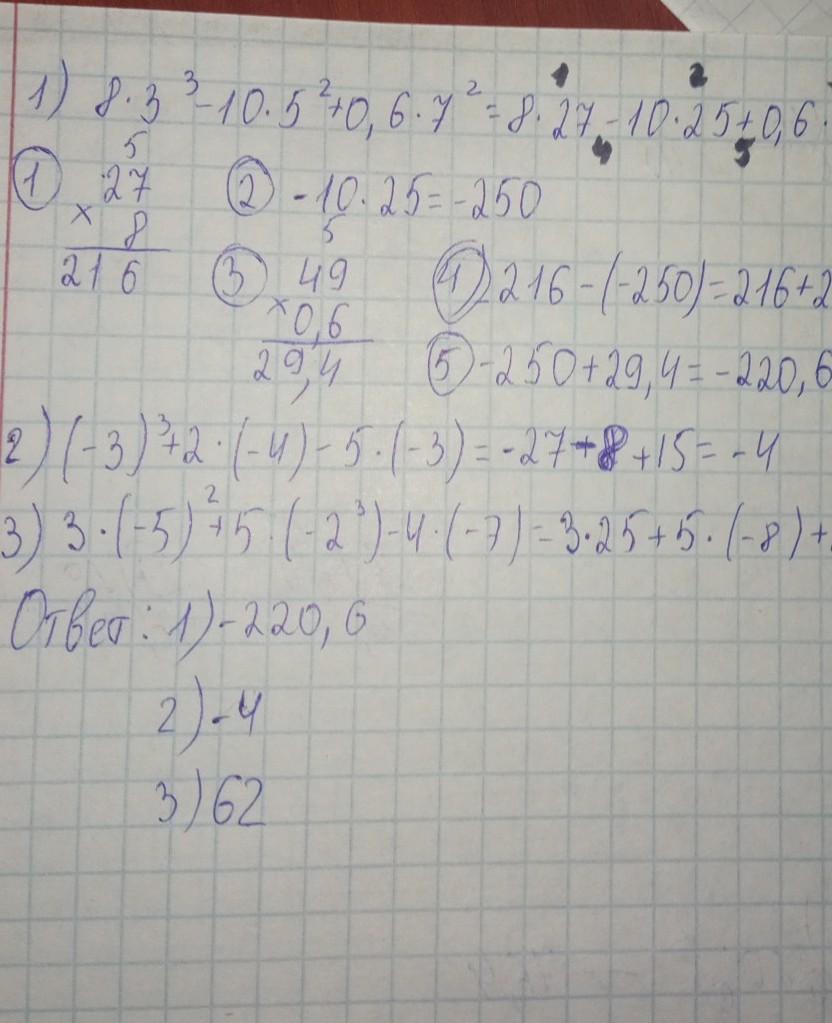 1) 8·3³-10·5²+0,6·7²=8·27-10·25+0,6·
1 2
4 5
① 5
27
× 8
216
② -10·25=-250
③ 5
49
×0,6
29,4
④ 216-(-250)=216+2
⑤ -250+29,4=-220,6
2) (-3)³+2·(-4)-5·(-3)=-27-8+15=-4
3) 3·(-5)²+5·(-2³)-4·(-7)=3·25+5·(-8)+
Ответ: 1)-220,6
2)-4
3)62